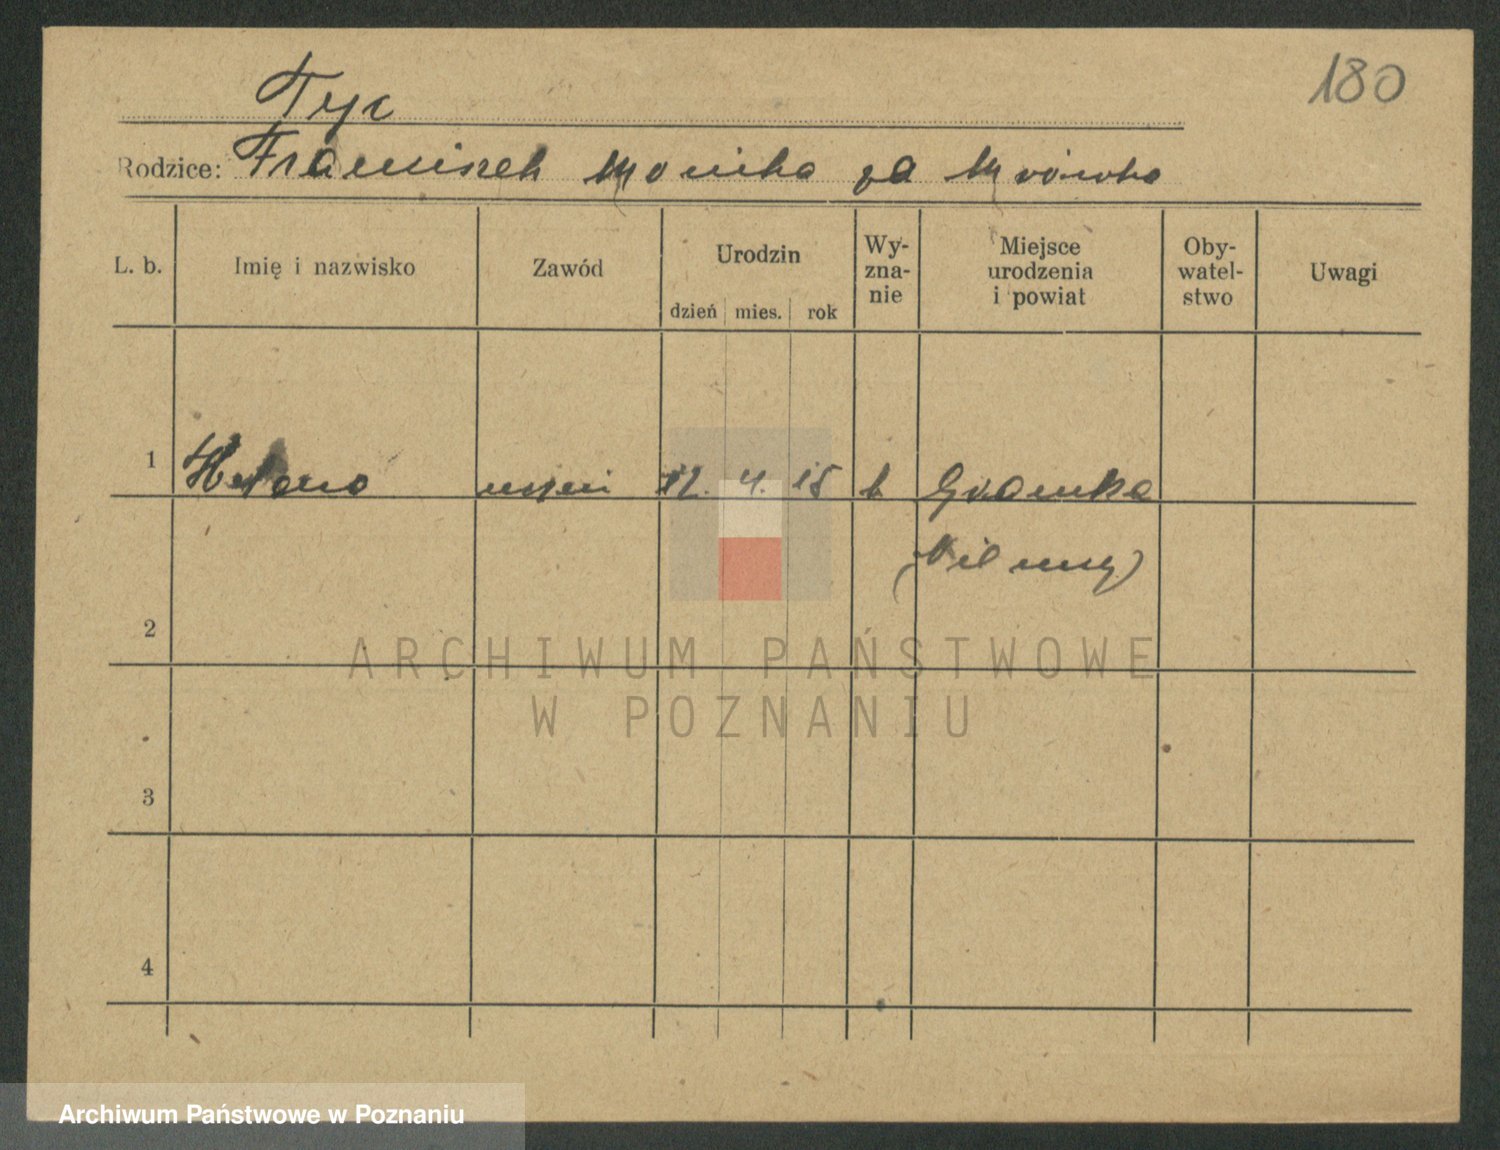 180
Tyc
Rodzice: Franciszek Monika za Mrówka
L. b. Imię i nazwisko Zawód Urodzin dzień mies. rok Wy-zna-nie Miejsce urodzenia i powiat Oby-watel-stwo Uwagi
1 Helena 12. 4. 15 k
(Niemcy)
2
ARCHIWUM PAŃSTWOWE
W POZNANIU
3
4
Archiwum Państwowe w Poznaniu